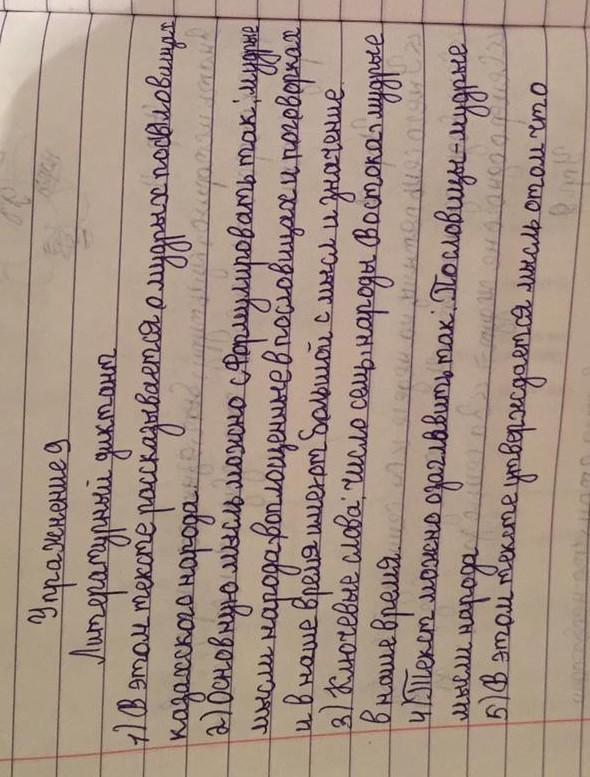 Упражнение 9
Литературный диктант
1) В этом тексте рассказывается о мудрых пословицах
казахского народа
2) Основную мысль можно сформулировать так: мудрые
мысли народа, воплощенные в пословицах и поговорках
и в наше время имеют большой смысл и значение.
3) Ключевые слова: число семь, народы Востока, мудрые
в наше время.
4) Текст можно озаглавить так: Пословицы - мудрые
мысли народа
5) В этом тексте утверждается мысль о том что